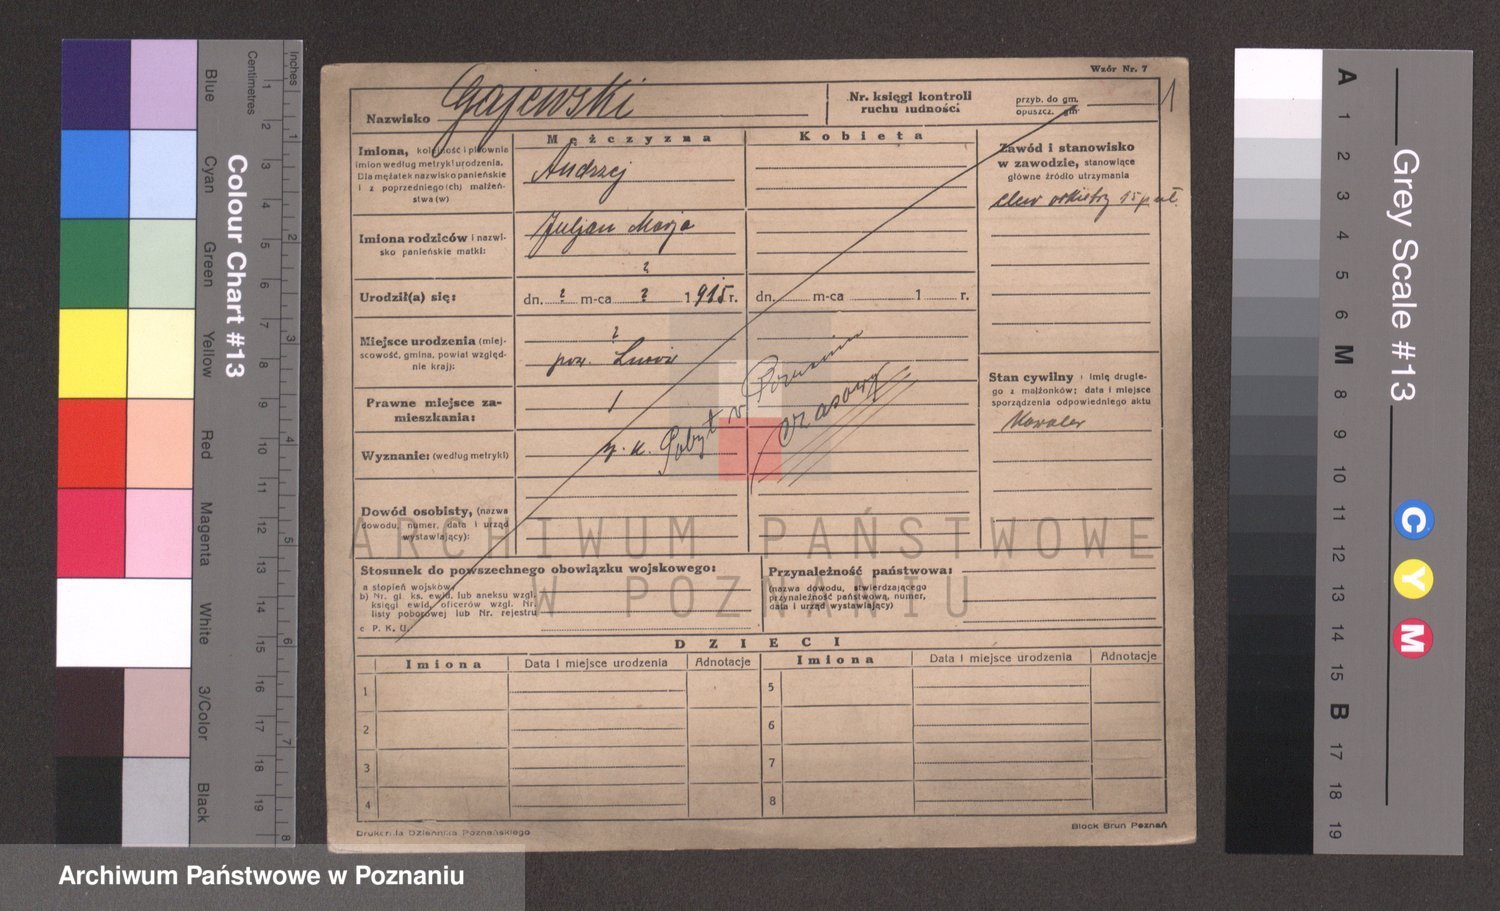 Wzór Nr. 7
Nazwisko Gajewski
Nr. księgi kontroli
ruchu ludności
przyb. do gm.
opuszcz. gm.
1
Mężczyzna
Kobieta
Imiona, kolejność i pisownia
imion według metryki urodzenia.
Dla mężatek nazwisko panieńskie
i z poprzedniego (ch) małżeń-
stwa (w)
Andrzej
Zawód i stanowisko
w zawodzie, stanowiące
główne źródło utrzymania
orkiestry 15
Imiona rodziców i nazwi-
sko panieńskie matki:
Juljan Marja
?
Urodził(a) się:
dn. ? m-ca ? 1915 r.
dn. m-ca 1 r.
Miejsce urodzenia (miej-
scowość, gmina, powiat względ-
nie kraj):
?
pow.
Prawne miejsce za-
mieszkania:
Wyznanie: (według metryki)
Pobyt w Poznaniu
czasowy
Stan cywilny : imię drugie-
go z małżonków; data i miejsce
sporządzenia odpowiedniego aktu
Kawaler
Dowód osobisty, (nazwa
dowodu, numer, data i urząd
wystawiający):
Stosunek do powszechnego obowiązku wojskowego:
a stopień wojskow.
b) Nr. gł. ks. ewid. lub aneksu wzgl.
księgi ewid. oficerów wzgl. Nr.
listy poborowej lub Nr. rejestru
c P. K. U.
Przynależność państwowa:
(nazwa dowodu, stwierdzającego
przynależność państwową, numer,
data i urząd wystawiający)
DZIECI
Imiona Data i miejsce urodzenia Adnotacje Imiona Data i miejsce urodzenia Adnotacje
1 5
2 6
3 7
4 8
Drukarnia Dziennika Poznańskiego
Block Brun Poznań
ARCHIWUM PAŃSTWOWE
W POZNANIU
Archiwum Państwowe w Poznaniu
Colour Chart #13
Blue Cyan Green Yellow Red Magenta White 3/Color Black
Centimetres
1 2 3 4 5 6 7 8 9 10 11 12 13 14 15 16 17 18 19
Inches
1 2 3 4 5 6 7 8
Grey Scale #13
A 1 2 3 4 5 6 M 8 9 10 11 12 13 14 15 B 17 18 19
C Y M